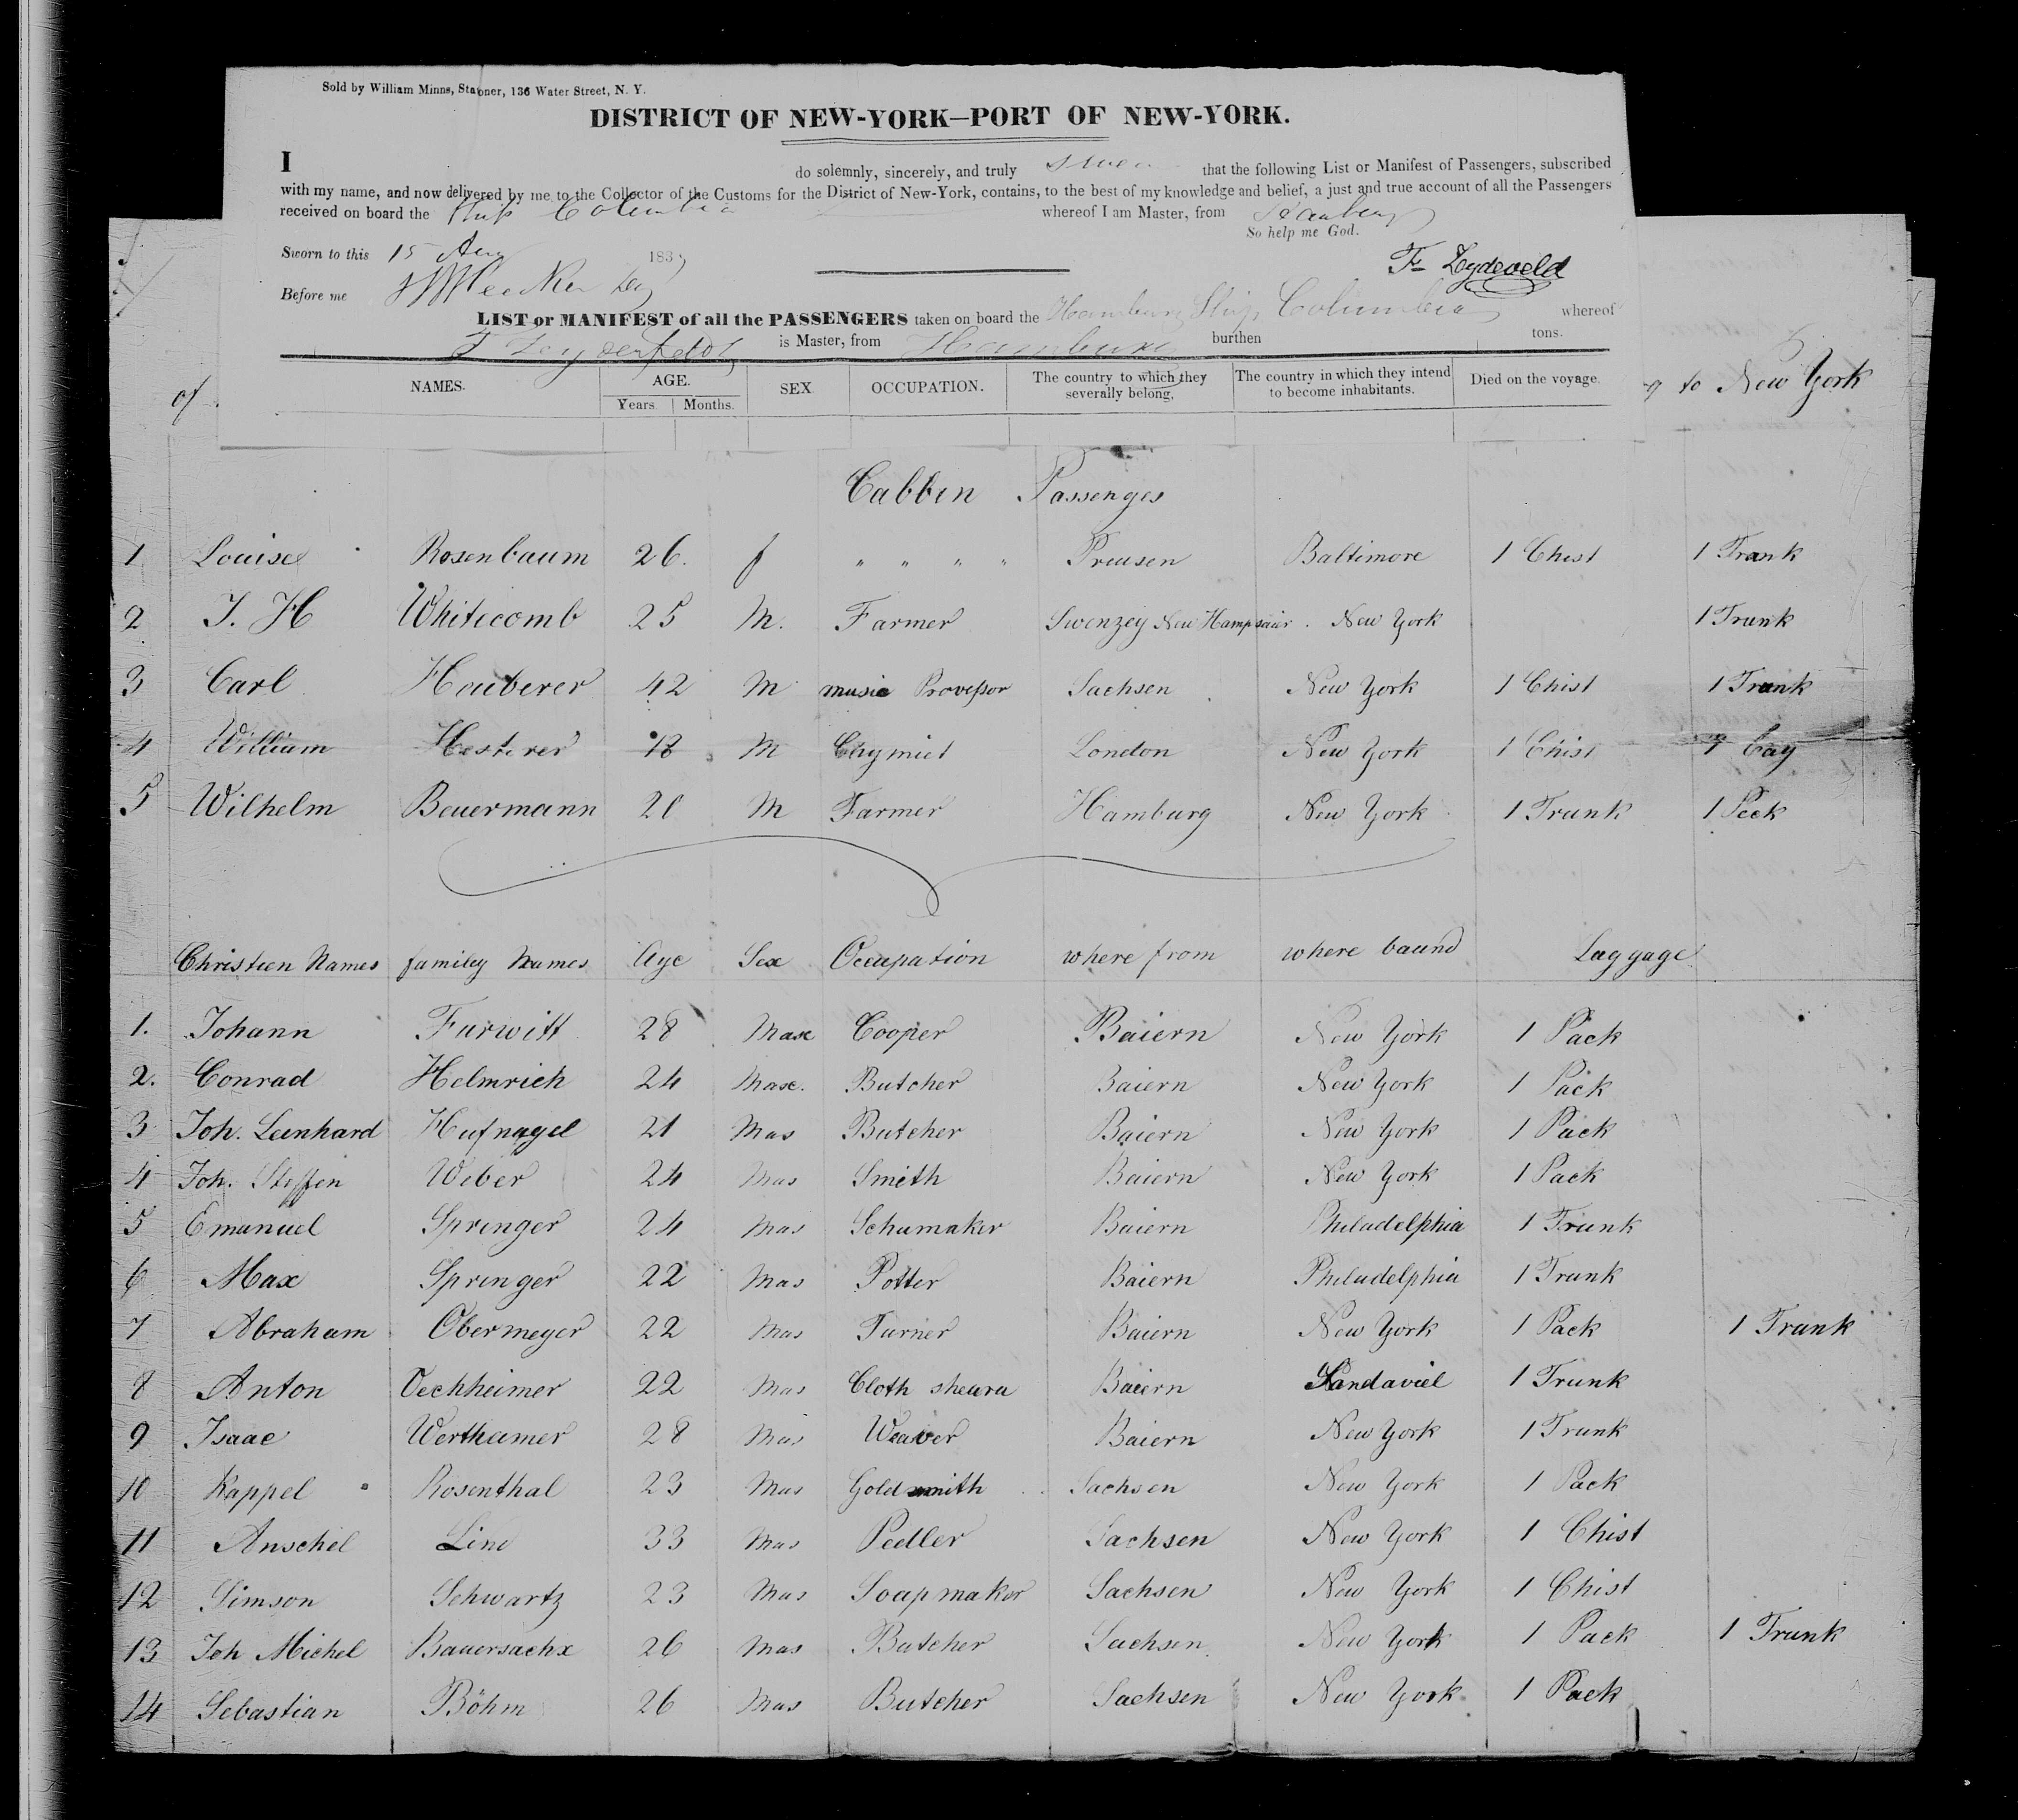 Sold by William Minns, Stationer, 136 Water Street, N. Y.
DISTRICT OF NEW-YORK—PORT OF NEW-YORK.
I do solemnly, sincerely, and truly swear that the following List or Manifest of Passengers, subscribed
with my name, and now delivered by me to the Collector of the Customs for the District of New-York, contains, to the best of my knowledge and belief, a just and true account of all the Passengers
received on board the Ship Columbia whereof I am Master, from Hamburg
So help me God.
Sworn to this 15 Aug 183
F Zeydeveld
Before me
LIST or MANIFEST of all the PASSENGERS taken on board the Hamburg Ship Columbia whereof
is Master, from Hamburg burthen tons.
NAMES. AGE. SEX. OCCUPATION. The country to which they severally belong. The country in which they intend to become inhabitants. Died on the voyage.
Years. Months.
of to New York
Cabbin Passenges
1 Louise Rosenbaum 26. f " " " " Preusen Baltimore 1 Chest 1 Trank
2 J. H Whitecomb 25 M. Farmer Swenzey New Hampsaier. New York 1 Trunk
3 Carl Hauberer 42 M music Provessor Sachsen New York 1 Chist 1 Trunk
4 William Hesterer 18 M Chymist London New York 1 Chist 1 Cay
5 Wilhelm Beuermann 20 M Farmer Hamburg New York 1 Trunk 1 Peck
Christien Names family Names Age Sex Occupation where from where baund Luggage
1. Johann Furwitt 28 Masc Cooper Baiern New York 1 Pack
2. Conrad Helmrich 24 Masc. Butcher Baiern New York 1 Pack
3 Joh. Leenhard Hufnagel 21 Mas Butcher Baiern New York 1 Pack
4 Joh. Steffen Weber 24 Mas Smith Baiern New York 1 Pack
5 Emanuel Springer 24 Mas Schumaker Baiern Philadelphia 1 Trunk
6 Max Springer 22 Mas Potter Baiern Philadelphia 1 Trunk
7 Abraham Obermeyer 22 Mas Turner Baiern New York 1 Pack 1 Trunk
8 Anton Oechheimer 22 Mas Cloth sheara Baiern Sandaviel 1 Trunk
9 Isaac Wertheimer 28 Mas Weaver Baiern New York 1 Trunk
10 Kappel Rosenthal 23 Mas Gold smith Sachsen New York 1 Pack
11 Anschel Lind 33 Mas Pedler Sachsen New York 1 Chist
12 Simson Schwartz 23 Mas Soap maker Sachsen New York 1 Chist
13 Joh Michel Bauersachx 26 Mas Butcher Sachsen New York 1 Pack 1 Trunk
14 Sebastian Böhm 26 Mas Butcher Sachsen New York 1 Pack